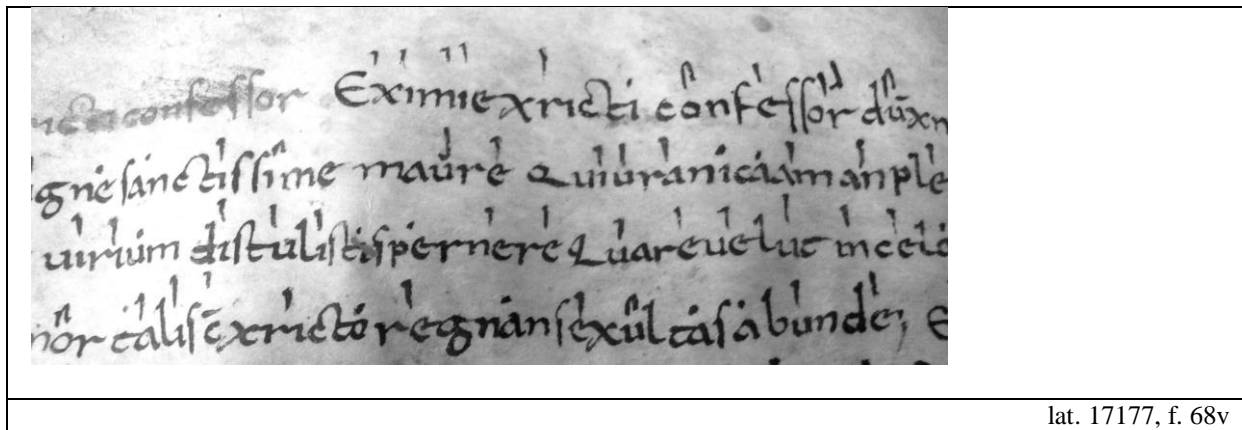 confessor Eximie xricti confessor dū xn
gne sanctissime maure Qui uranica am anple
uirium distulisti spernere Quare uelut in celo
mortalis c̄ xricto regnans exultas abunde; E
lat. 17177, f. 68v